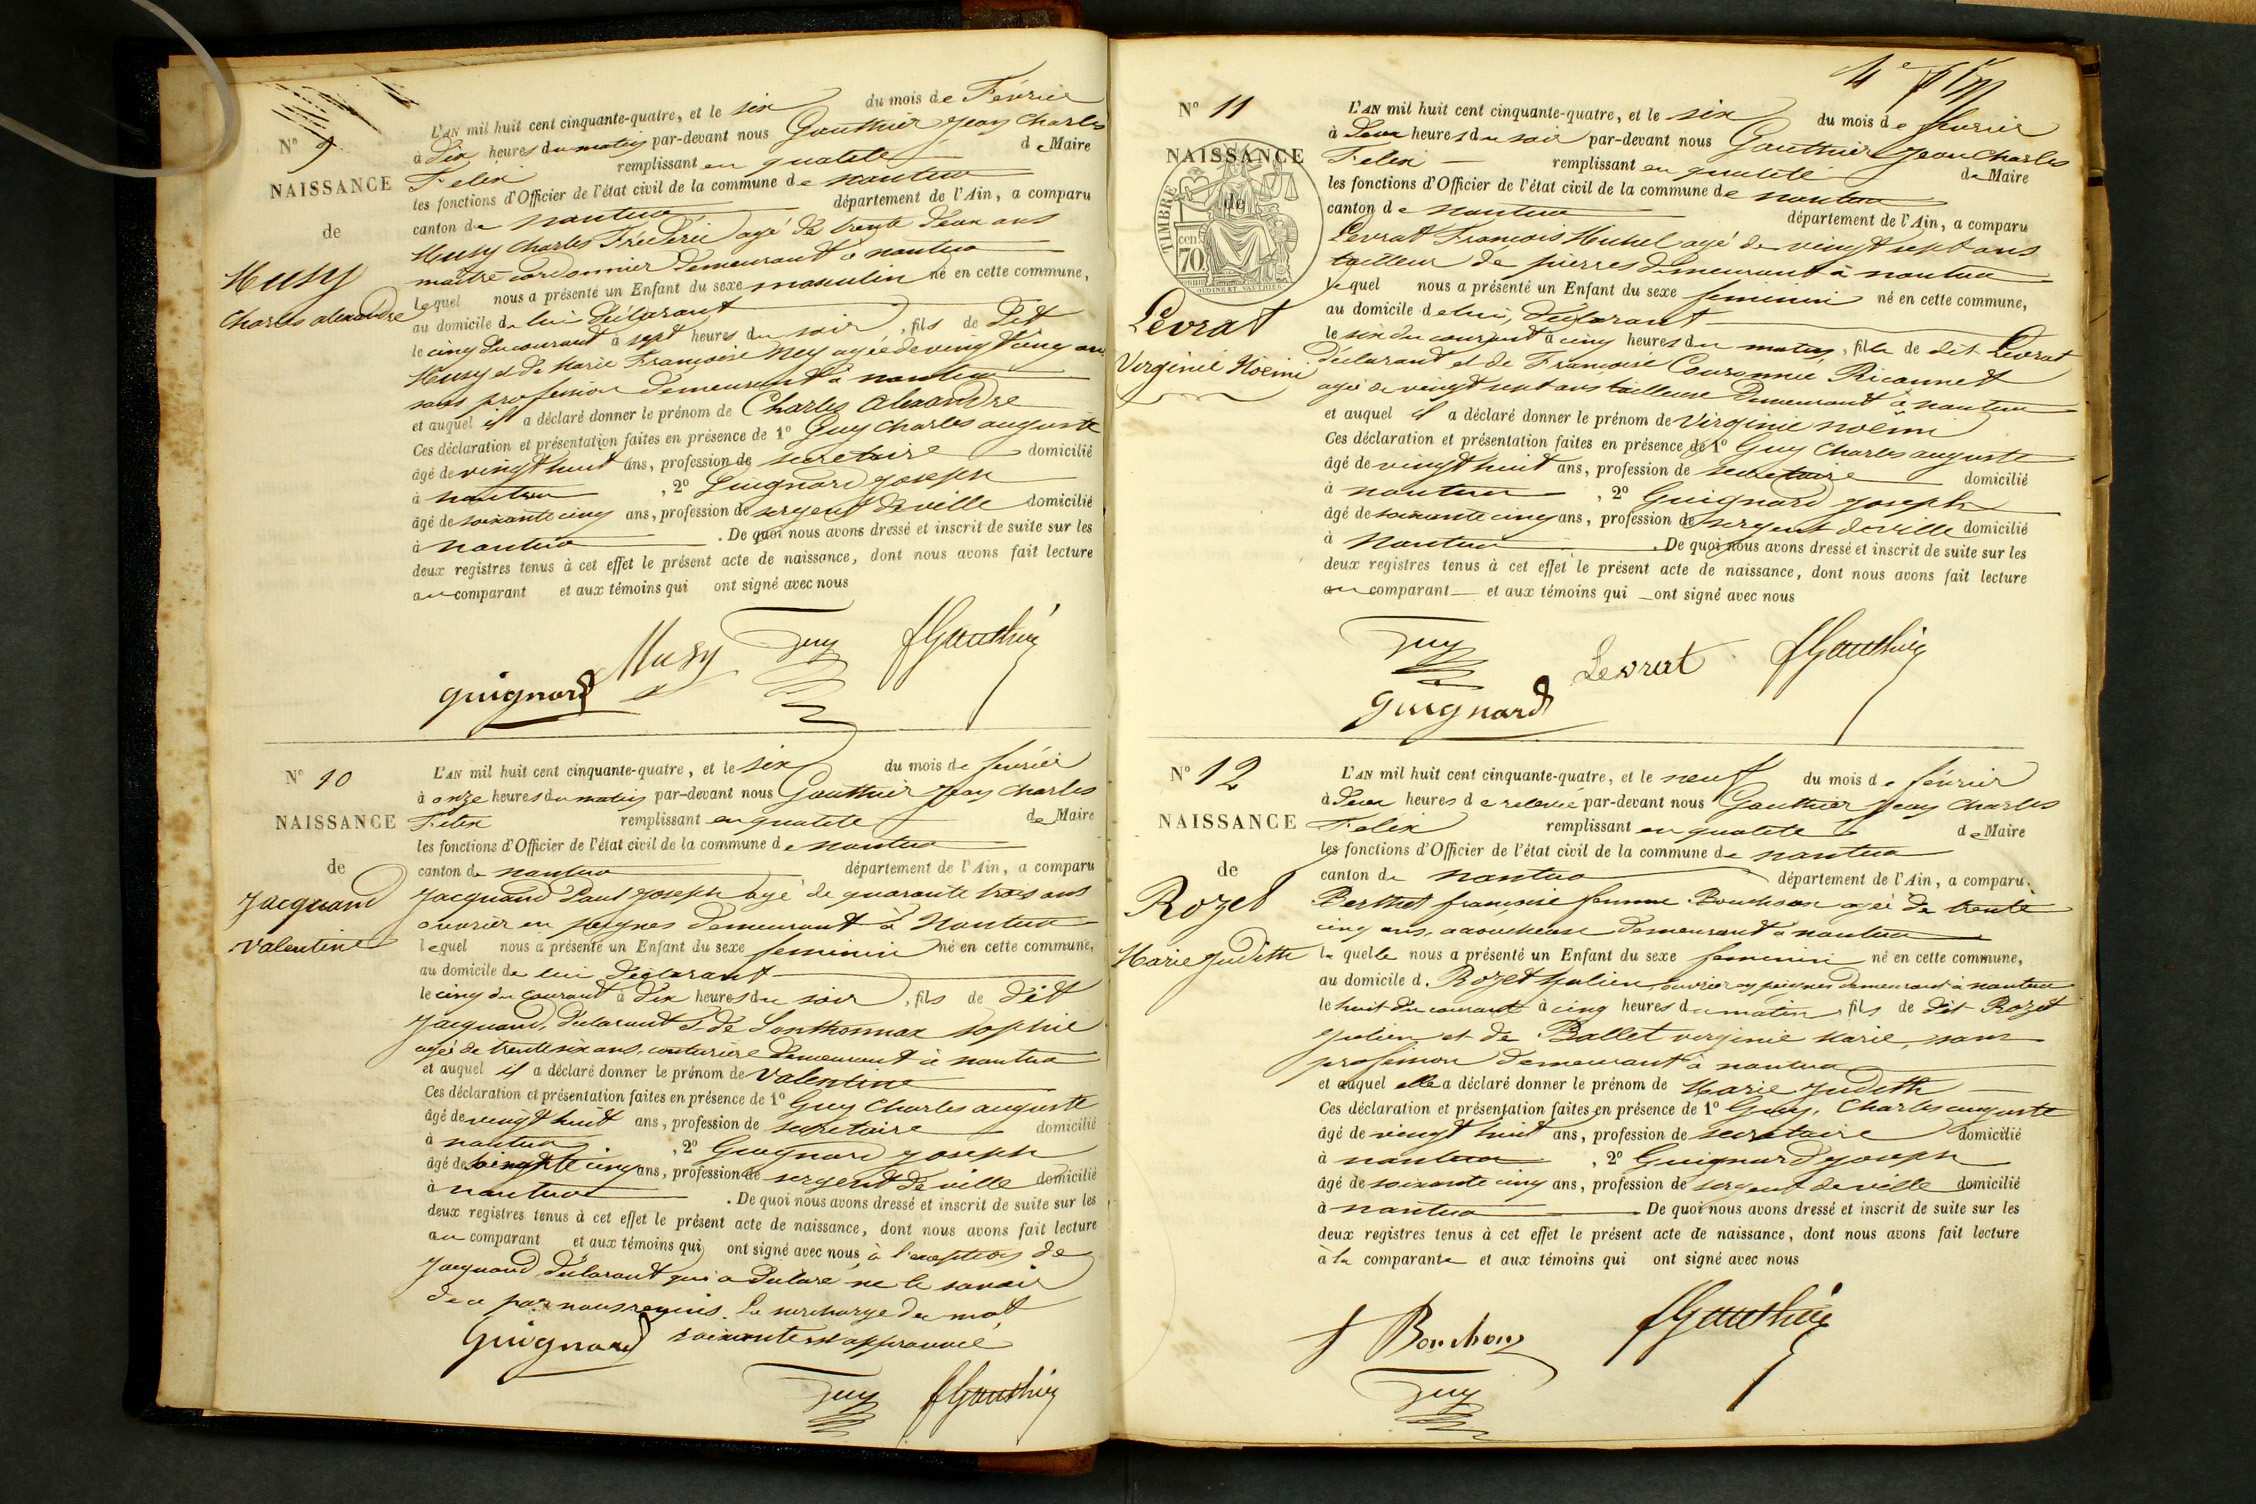 N° 9
NAISSANCE
de
Musy
Charles alexandre
L'AN mil huit cent cinquante-quatre, et le six du mois de Février
à dix heures du matin par-devant nous Gauthier Jean Charles
Felix remplissant en qualité de Maire
les fonctions d'Officier de l'état civil de la commune de nantua
canton de nantua département de l'Ain, a comparu
Musy Charles Fréderic agé de trente deux ans
maitre cordonnier demeurant à nantua
lequel nous a présenté un Enfant du sexe masculin né en cette commune,
au domicile de lui déclarant
le cinq du courant à sept heures du soir, fils de dit
Musy et de Marie Françoise Ney agée de vingt cinq ans
sans profession demeurant à nantua
et auquel il a déclaré donner le prénom de Charles Alexandre
Ces déclaration et présentation faites en présence de 1° Guy Charles auguste
âgé de vingt huit ans, profession de secretaire domicilié
à nantua, 2° Guignard joseph
âgé de soixante cinq ans, profession de sergent de ville domicilié
à nantua. De quoi nous avons dressé et inscrit de suite sur les
deux registres tenus à cet effet le présent acte de naissance, dont nous avons fait lecture
au comparant et aux témoins qui ont signé avec nous
Musy Guy fGauthier
guignard
N° 10
NAISSANCE
de
Jacquand
Valentine
L'AN mil huit cent cinquante-quatre, et le six du mois de février
à onze heures du matin par-devant nous Gauthier Jean Charles
Felix remplissant en qualité de Maire
les fonctions d'Officier de l'état civil de la commune de nantua
canton de nantua département de l'Ain, a comparu
Jacquand Paul Joseph agé de quarante trois ans
ouvrier en peignes demeurant à Nantua
lequel nous a présenté un Enfant du sexe feminin né en cette commune,
au domicile de lui déclarant
le cinq du courant à dix heures du soir, fils de dit
Jacquand, déclarant & de Sonthonnax sophie
agée de trente six ans, couturière demeurant à nantua
et auquel il a déclaré donner le prénom de Valentine
Ces déclaration et présentation faites en présence de 1° Guy Charles auguste
âgé de vingt huit ans, profession de secretaire domicilié
à nantua, 2° Guignard joseph
âgé de soixante cinq ans, profession de sergent de ville domicilié
à nantua. De quoi nous avons dressé et inscrit de suite sur les
deux registres tenus à cet effet le présent acte de naissance, dont nous avons fait lecture
au comparant et aux témoins qui ont signé avec nous à l'exception de
Jacquand déclarant qui a déclaré ne le savoir
de ce par nous requis. La surcharge du mot
soixante est approuvée
Guignard
Guy fGauthier
4e
N° 11
NAISSANCE
de
TIMBRE
cen. 70
Levrat
Virginie Noëmi
L'AN mil huit cent cinquante-quatre, et le six du mois de fevrier
à deux heures du soir par-devant nous Gauthier Jean Charles
Felix remplissant en qualité de Maire
les fonctions d'Officier de l'état civil de la commune de nantua
canton de Nantua département de l'Ain, a comparu
Levrat François Michel agé de vingt sept ans
tailleur de pierres demeurant à nantua
lequel nous a présenté un Enfant du sexe feminin né en cette commune,
au domicile de lui, déclarant
le six du courant à cinq heures du matin, fille de dit Levrat
déclarant et de Françoise Couronnée Ricannet
agée de vingt sept ans tailleuse demeurant à nantua
et auquel il a déclaré donner le prénom de Virginie noëmi
Ces déclaration et présentation faites en présence de 1° Guy Charles auguste
âgé de vingt huit ans, profession de secretaire domicilié
à nantua, 2° Guignard joseph
âgé de soixante cinq ans, profession de sergent de ville domicilié
à Nantua. De quoi nous avons dressé et inscrit de suite sur les
deux registres tenus à cet effet le présent acte de naissance, dont nous avons fait lecture
au comparant et aux témoins qui ont signé avec nous
Guy Levrat fGauthier
Guignard
N° 12
NAISSANCE
de
Rozet
Marie Judith
L'AN mil huit cent cinquante-quatre, et le neuf du mois de février
à deux heures de relevée par-devant nous Gauthier Jean Charles
Felix remplissant en qualité de Maire
les fonctions d'Officier de l'état civil de la commune de nantua
canton de nantua département de l'Ain, a comparu
Berthet françoise femme Bouchon agée de trente
cinq ans, accoucheuse demeurant à nantua
la quelle nous a présenté un Enfant du sexe feminin né en cette commune,
au domicile d. Rozet Julien ouvrier en peignes demeurant à nantua
le huit du courant à cinq heures du matin, fils de dit Rozet
Julien et de Ballet virginie Marie, sans
profession demeurant à nantua
et auquel elle a déclaré donner le prénom de Marie Judith
Ces déclaration et présentation faites en présence de 1° Guy, Charles auguste
âgé de vingt huit ans, profession de secretaire domicilié
à nantua, 2° Guignard joseph
âgé de soixante cinq ans, profession de sergent de ville domicilié
à nantua. De quoi nous avons dressé et inscrit de suite sur les
deux registres tenus à cet effet le présent acte de naissance, dont nous avons fait lecture
à la comparante et aux témoins qui ont signé avec nous
f Bouchon fGauthier
Guy